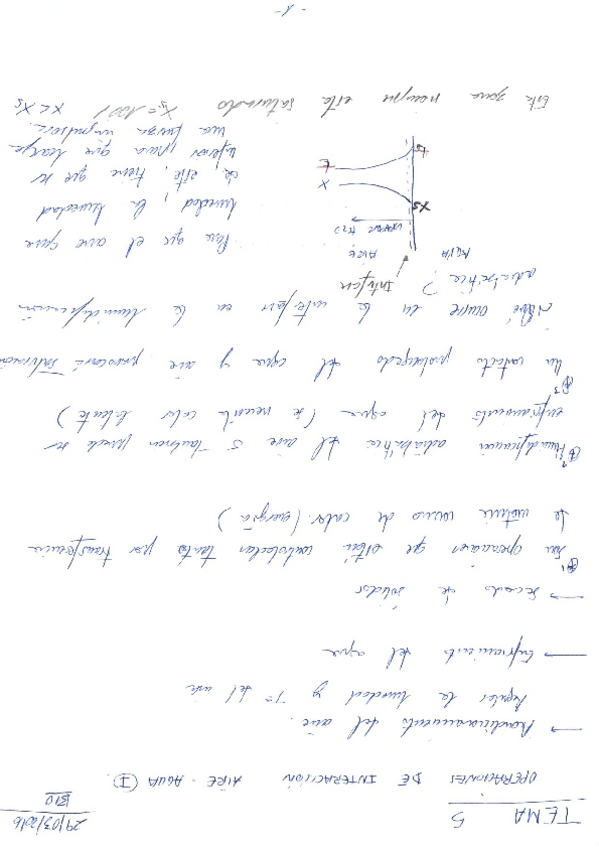 TEMA 5
29/03/2016
BIO
OPERACIONES DE INTERACCIÓN AIRE-AGUA (I).
→ Acondicionamiento del aire.
Regular la humedad y Tª del aire
→ Enfriamiento del agua
→ Secado de sólidos
①1 Son operaciones que están controladas tanto por transferencia
de materia como de calor (energía)
①2 Humidificación adiabática del aire o también puede ser
enfriamiento del agua (se necesita calor latente)
①3 Un contacto prolongado del agua y aire provocará saturación
¿Qué ocurre en la interfase en la humidificación
adiabática?
Interfase
AGUA
AIRE
VAPOR H2O
Xs
X
t
ts
Para que el aire gane
humedad, la humedad
de este, tiene que ser
inferior para que tenga
una fuerza impulsora.
Esta zona siempre está saturada Xs = 100% X < Xs
- 1 -